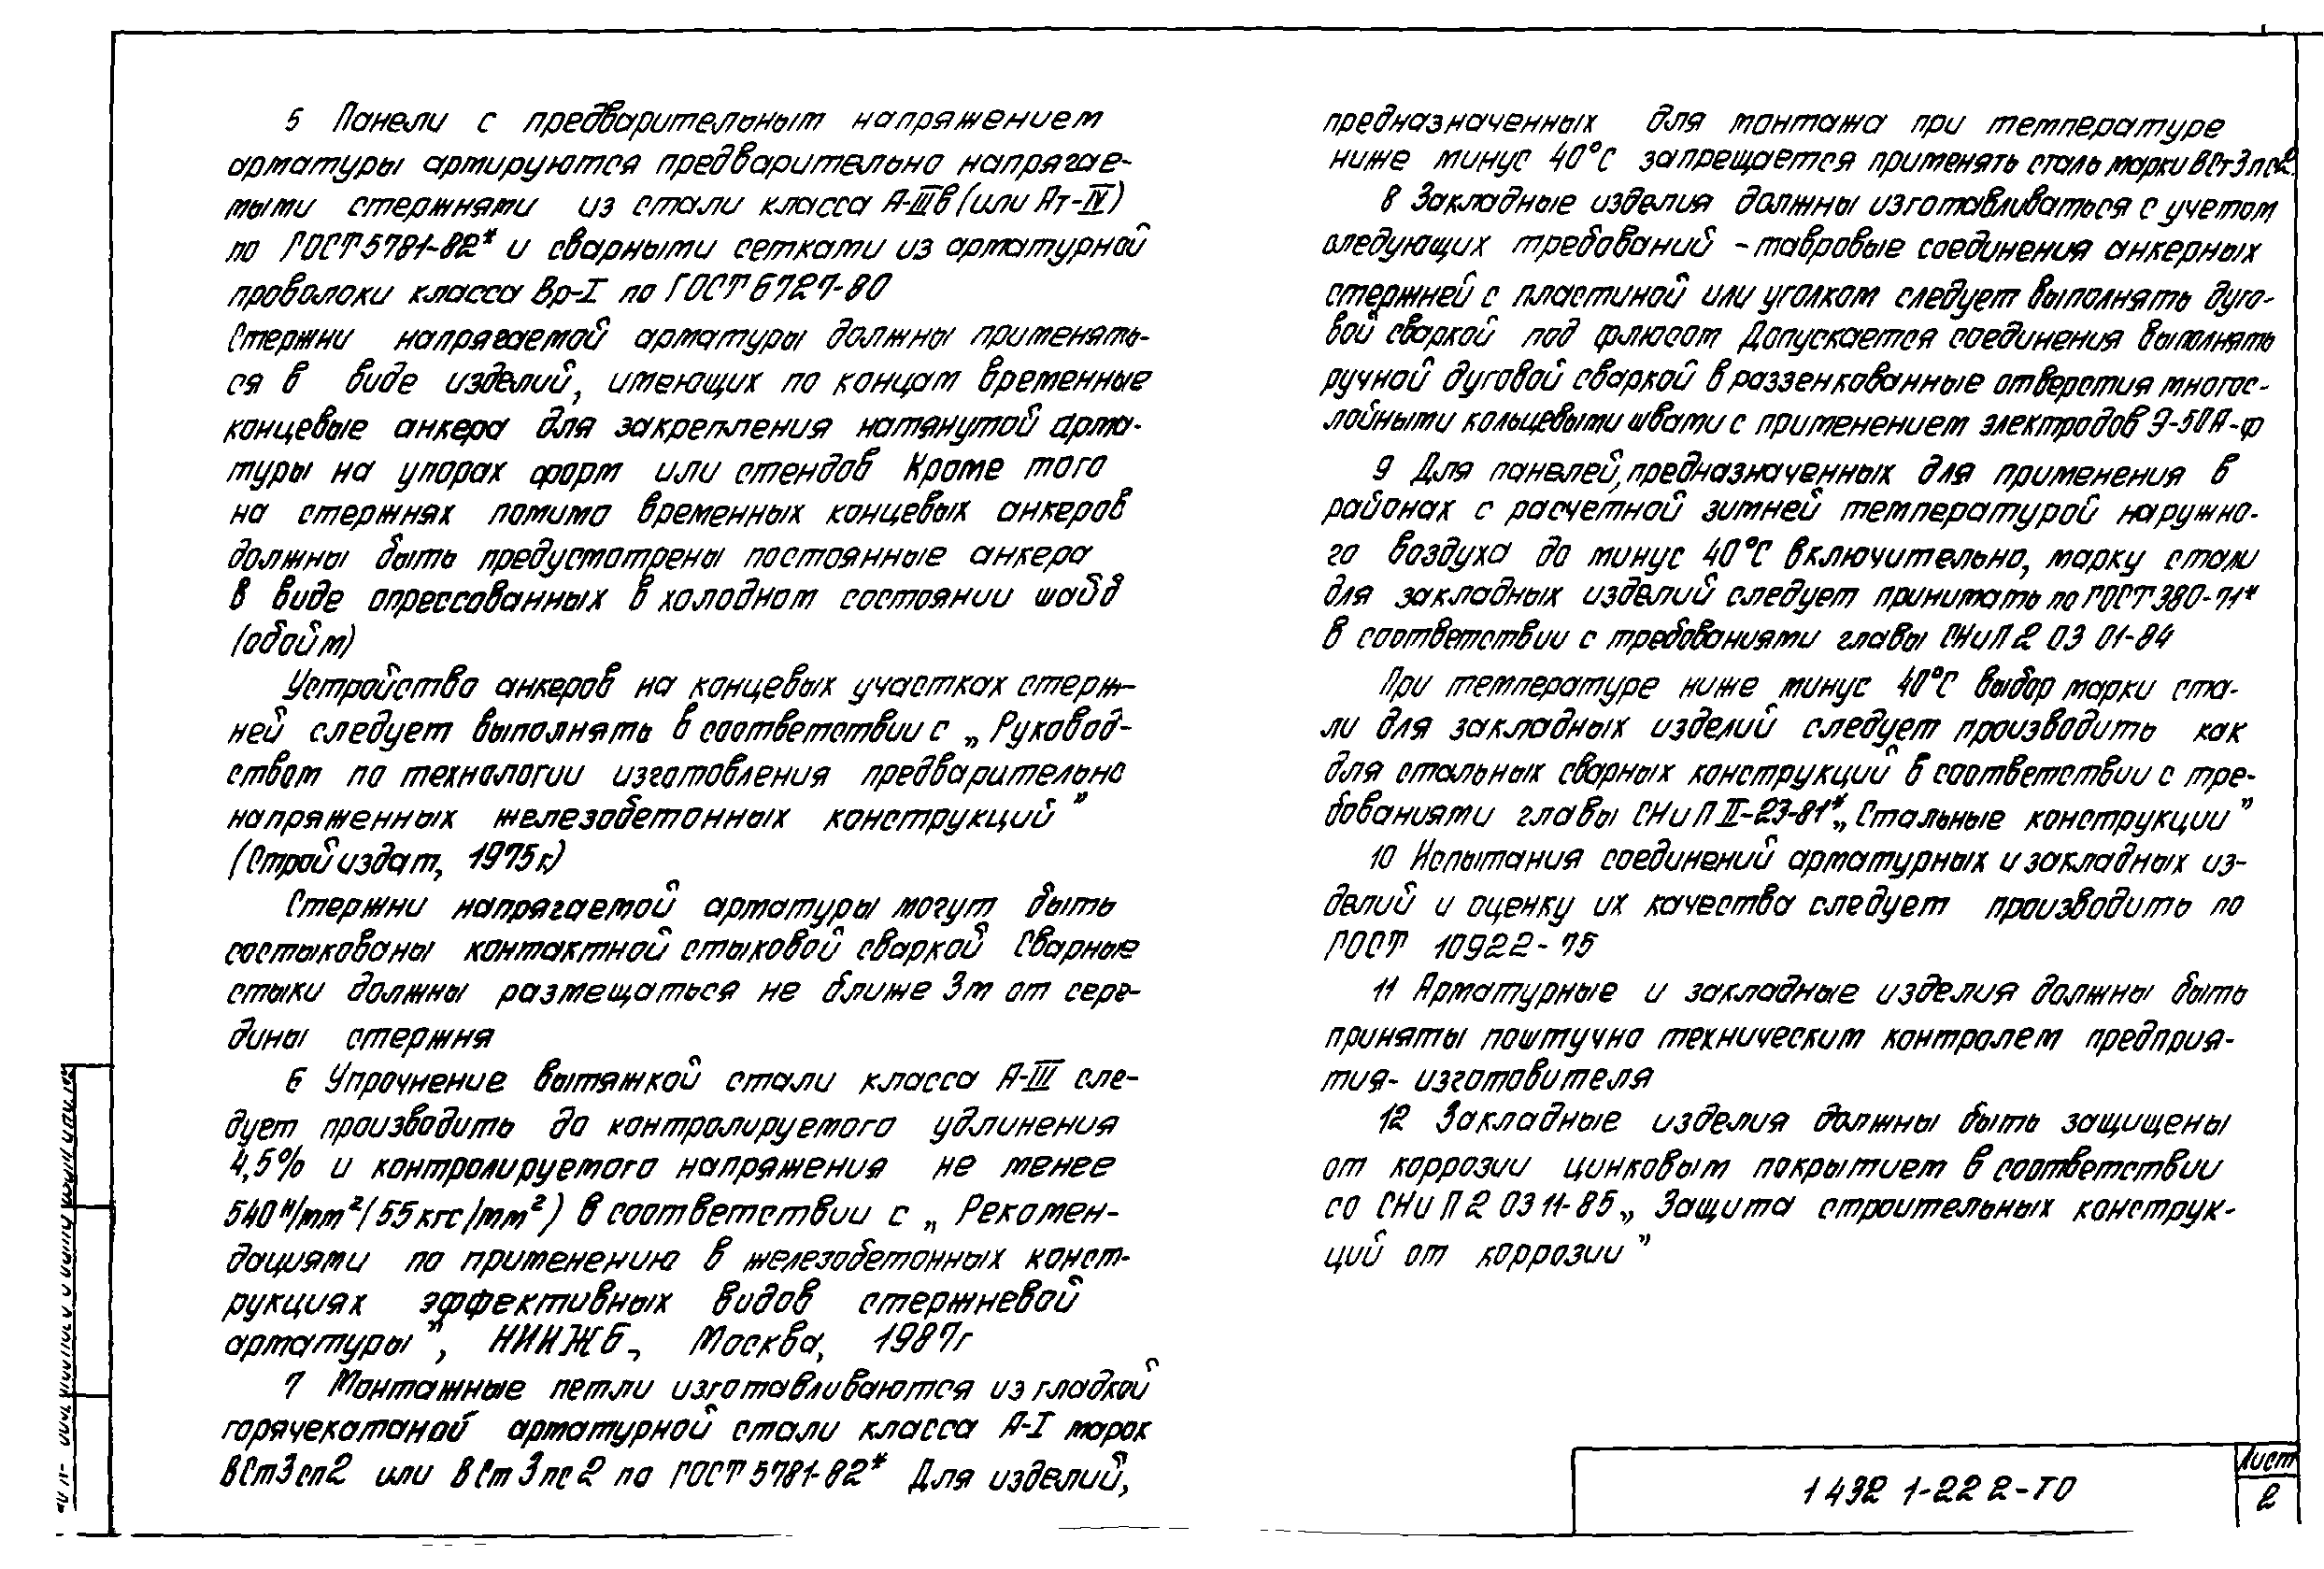 5 Панели с предварительным напряжением
арматуры армируются предварительно напрягае-
мыми стержнями из стали класса А-IIIв (или Ат-IV)
по ГОСТ 5781-82* и сварными сетками из арматурной
проволоки класса Вр-I по ГОСТ 6727-80
Стержни напрягаемой арматуры должны применять-
ся в виде изделий, имеющих по концам временные
концевые анкера для закрепления натянутой арма-
туры на упорах форм или стендов Кроме того
на стержнях помимо временных концевых анкеров
должны быть предусмотрены постоянные анкера
в виде опрессованных в холодном состоянии шайб
(обойм)
Устройство анкеров на концевых участках стерж-
ней следует выполнять в соответствии с „Руковод-
ством по технологии изготовления предварительно
напряженных железобетонных конструкций”
(Стройиздат, 1975г.)
Стержни напрягаемой арматуры могут быть
состыкованы контактной стыковой сваркой Сварные
стыки должны размещаться не ближе 3м от сере-
дины стержня
6 Упрочнение вытяжкой стали класса А-III сле-
дует производить до контролируемого удлинения
4,5% и контролируемого напряжения не менее
540 н/мм² (55 кгс/мм²) в соответствии с „Рекомен-
дациями по применению в железобетонных конст-
рукциях эффективных видов стержневой
арматуры”, НИИЖБ, Москва, 1987г
7 Монтажные петли изготавливаются из гладкой
горячекатаной арматурной стали класса А-I марок
ВСт3сп2 или ВСт3пс2 по ГОСТ 5781-82* Для изделий,
предназначенных для монтажа при температуре
ниже минус 40°С запрещается применять сталь марки ВСт3пс2.
8 Закладные изделия должны изготавливаться с учетом
следующих требований - тавровые соединения анкерных
стержней с пластиной или уголком следует выполнять дуго-
вой сваркой под флюсом Допускается соединения выполнять
ручной дуговой сваркой в раззенкованные отверстия многос-
лойными кольцевыми швами с применением электродов Э-50А-Ф
9 Для панелей, предназначенных для применения в
районах с расчетной зимней температурой наружно-
го воздуха до минус 40°С включительно, марку стали
для закладных изделий следует принимать по ГОСТ 380-71*
в соответствии с требованиями главы СНиП 2 03 01-84
При температуре ниже минус 40°С выбор марки ста-
ли для закладных изделий следует производить как
для стальных сварных конструкций в соответствии с тре-
бованиями главы СНиП II-23-81* „Стальные конструкции”
10 Испытания соединений арматурных и закладных из-
делий и оценку их качества следует производить по
ГОСТ 10922-75
11 Арматурные и закладные изделия должны быть
приняты поштучно техническим контролем предприя-
тия-изготовителя
12 Закладные изделия должны быть защищены
от коррозии цинковым покрытием в соответствии
со СНиП 2 03 11-85 „Защита строительных конструк-
ций от коррозии”
1 432 1-22 2-ТО
Лист
2